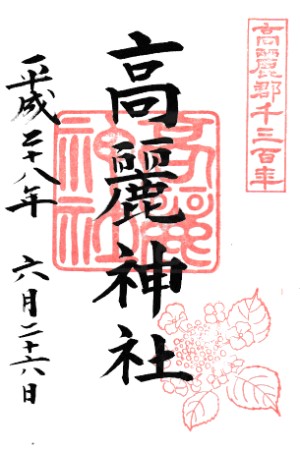 高麗郡千三百年
高麗神社
高麗神社
平成二十八年 六月二十六日